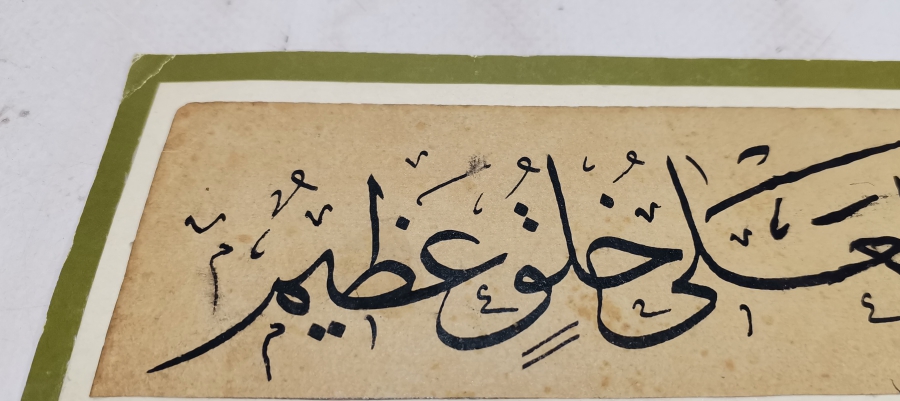 لعلى خُلُقٍ عَظيم